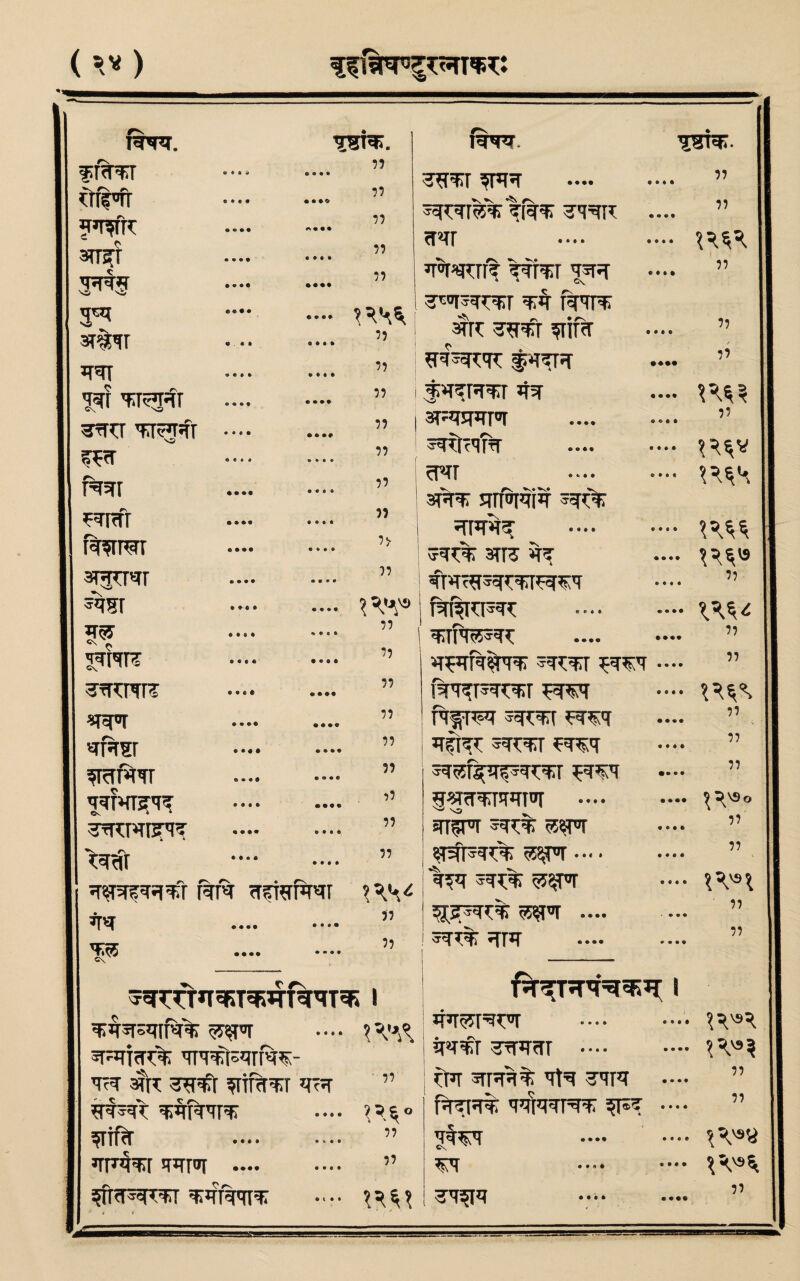 ( २४ ) बृहन्निघण्टुरत्नाकरः
विषय. पृष्ठांक.
कृत्तिका .... .... ”
रोहिणी .... .... ”
मृगशिर .... .... ”
आर्द्रा .... .... ”
पुनर्वसु .... .... ”
पुष्य .... .... १२५६
अश्लेषा .... .... ”
मघा .... .... ”
पूर्वा फाल्गुनी .... .... ”
उत्तरा फाल्गुनी .... .... ”
हस्त .... .... ”
चित्रा .... .... ”
स्वाती .... .... ”
विशाखा .... .... ”
अनुराधा .... .... ”
ज्येष्ठा .... .... १२५७
मूळ .... .... ”
पूर्वाषाढ .... .... ”
उत्तराषाढ .... .... ”
श्रवण .... .... ”
धनिष्ठा .... .... ”
शतभिषा .... .... ”
पूर्वाभाद्रपद .... .... ”
उत्तराभाद्रपद .... .... ”
रेवती .... .... ”
विषे १२५८
मंत्र .... .... ”
फल .... .... ”
ज्वररोगकाकर्मविपाक ।
कर्मजव्याधिके लक्षण .... १२५९
जन्मांतरके पापकीव्याधिके-
पाप और उसकी शांतिका यत्न ”
सर्वज्वर कर्मविपाक .... १२६०
शांति .... .... ”
गायत्रीका प्रमाण .... .... ”
शीतज्वरका कर्मविपाक .... १२६१
विषय. पृष्ठांक.
उसका शमन .... .... ”
ज्वरादिकके दैविक उपचार .... ”
तथा .... .... १२६२
उष्णज्वरका कर्म विपाक
और उसकी शांति .... ”
सर्वज्वरपर कुंभदान .... ”
कुंभदानका मंत्र .... १२६३
अन्यप्रमाण .... .... ”
ज्वरोत्पत्ति .... .... १२६४
तथा .... .... १२६५
अनेक प्राणियोंमें ज्वरके
नामभेद .... .... १२६६
ज्वरके आठ भेद .... १२६७
.... ”
शिशिरज्वर .... .... १२६८
कामिलज्वर .... .... ”
ज्वरका स्वरूप .... ”
त्रिपादज्वरका स्वरूप .... १२६९
पिङ्गलाख्य ज्वरका स्वरूप .... ”
महोदर ज्वरका स्वरूप .... ”
स्वरूप .... ”
.... .... १२७०
ब्राह्मण ज्वरके लक्षण .... ”
क्षत्रीज्वरके लक्षण .... .... ”
वैश्य ज्वरके लक्षण .... १२७१
शूद्रज्वरके लक्षण .... .... ”
ज्वरके नाम .... .... ”
निदानपंचकम् ।
मंगलाचरण .... .... १२७२
ग्रन्थकी उत्तमता .... .... १२७३
रोग जाननेके पांच उपाय .... ”
निदानके पर्यायवाचक शब्द .... ”
पूर्वरूप .... .... १२७४
रूप .... .... १२७६
उपशय .... .... ”